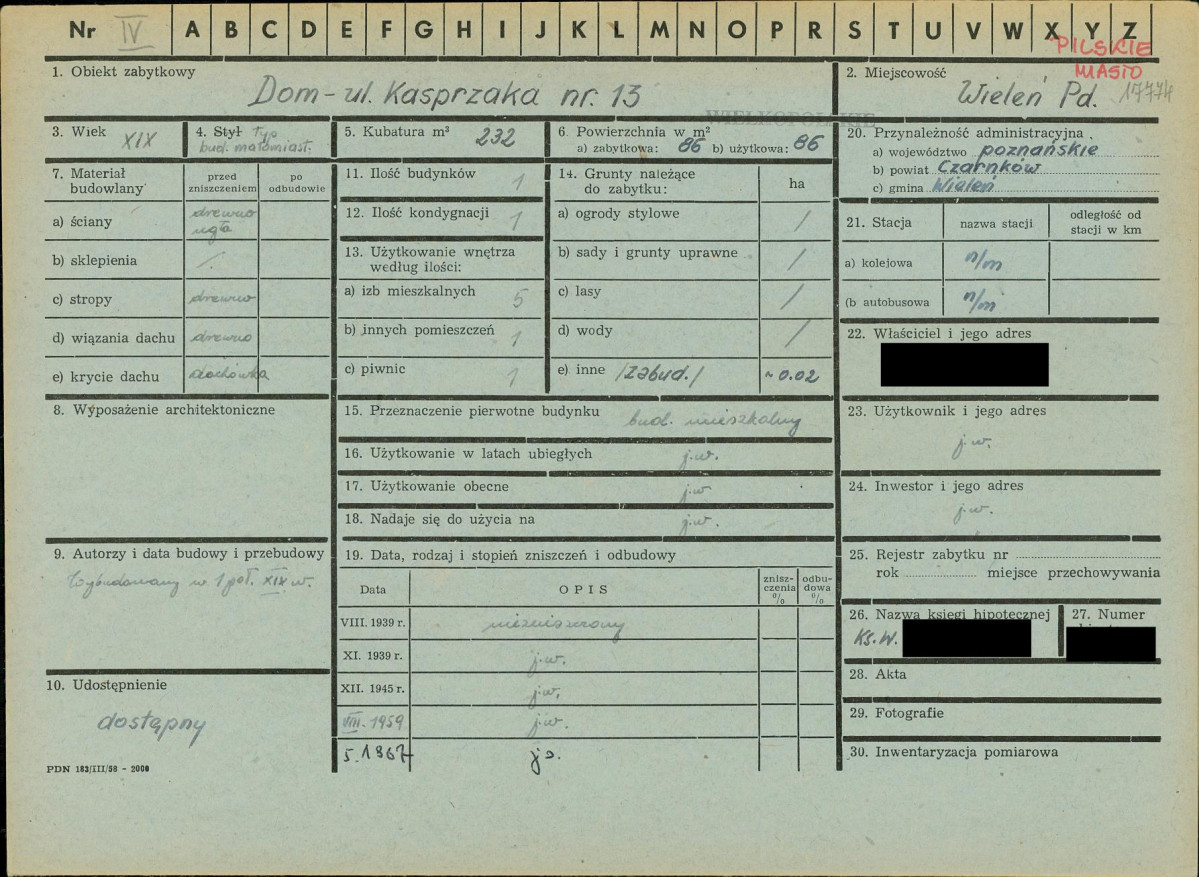 Nr IV A B C D E F G H I J K L M N O P R S T U V W X Y Z
PILSKIE
MIASTO
17774
1. Obiekt zabytkowy
Dom - ul. Kasprzaka nr. 13
2. Miejscowość
Wieleń Pd.
WIELKOPOLSKIE
3. Wiek XIX
4. Styl typ
bud. małomiast.
5. Kubatura m³ 232
6. Powierzchnia w m²
a) zabytkowa: 86 b) użytkowa: 86
7. Materiał budowlany
przed zniszczeniem
po odbudowie
a) ściany drewno
b) sklepienia /.
c) stropy drewno
d) wiązania dachu drewno
e) krycie dachu dachówka
8. Wyposażenie architektoniczne
9. Autorzy i data budowy i przebudowy
Wybudowany w 1 poł. XIX w.
10. Udostępnienie
dostępny
PDN 183/III/58 - 2000
11. Ilość budynków 1
12. Ilość kondygnacji 1
13. Użytkowanie wnętrza
według ilości:
a) izb mieszkalnych 5
b) innych pomieszczeń 1
c) piwnic 1
14. Grunty należące
do zabytku:
ha
a) ogrody stylowe /
b) sady i grunty uprawne /
c) lasy /
d) wody /
e) inne /zabud./ ~0.02
15. Przeznaczenie pierwotne budynku
bud. mieszkalny
16. Użytkowanie w latach ubiegłych j.w.
17. Użytkowanie obecne j.w.
18. Nadaje się do użycia na j.w.
19. Data, rodzaj i stopień zniszczeń i odbudowy
Data
OPIS
znisz-
czenia
%
odbu-
dowa
%
VIII. 1939 r. niezniszczony
XI. 1939 r. j.w.
XII. 1945 r. j.w.
VIII. 1959 j.w.
5. 1967 j.
20. Przynależność administracyjna
a) województwo poznańskie
b) powiat Czarnków
c) gmina Wieleń
21. Stacja
nazwa stacji
odległość od
stacji w km
a) kolejowa n/m
(b autobusowa n/m
22. Właściciel i jego adres
23. Użytkownik i jego adres
j.w.
24. Inwestor i jego adres
j.w.
25. Rejestr zabytku nr
rok miejsce przechowywania
26. Nazwa księgi hipotecznej
Ks. W.
27. Numer
28. Akta
29. Fotografie
30. Inwentaryzacja pomiarowa